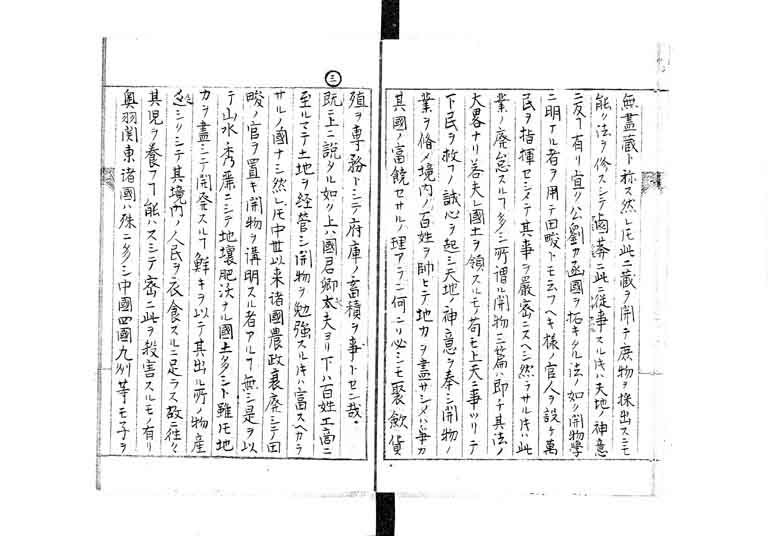 無盡蔵ト称ス然レ𪜈此二蔵ヲ開テ庶物ヲ採出スニモ
能ク法ヲ修スシテ鹵莽ニ此ニ従事スル𪜈ハ天地ノ神意
ニ反ヿ有リ宜ク公劉カ豳國ヲ拓キタル法ノ如ク開物學
ニ明ナル者ヲ用テ田畯トモ云フヘキ様ノ官人ヲ設ケ萬
民ヲ指揮セシメテ其事ヲ嚴密ニスヘシ然ラサル𪜈ハ此
業ノ廃怠スルヿ多シ所謂ル開物ニ篇ハ即チ其法ノ
大畧ナリ若夫レ國土ヲ領スルモノ苟モ上天ニ事ツリテ
下民ヲ救フノ誠心ヲ起シ天地ノ神意ヲ奉シ開物ノ
業ヲ脩メ境内ノ百姓ヲ帥ヒテ地力ヲ盡サシメハ争カ
其國ノ富饒セサルノ理アラン何ソ必シモ聚斂貨
三
殖ヲ専務トシテ府庫ノ畜積ヲ事トセン哉
既ニ上ニ説タル如ク上ハ國君卿太夫ヨリ下ハ百姓工商ニ
至ルマテ土地ヲ経営シ開物ヲ勉強スル𪜈ハ富スヘカラ
サルノ國ナシ然レ𪜈中世以来諸國農政衰廃シテ田
畯ノ官ヲ置キ開物ヲ講明スル者アルヿ無シ是ヲ以
テ山水秀麗ニシテ地壤肥沃ナル國土多シト雖𪜈地
力ヲ盡シテ開発スルヿ鮮キヲ以テ其出ル所ノ物産
シテ其境内ノ人民ヲ衣食スルニ足ラス故ニ往々
其児ヲ養フヿ能ハスシテ密ニ此ヲ殺害スルモノ有リ
奥羽関東諸國ハ殊ニ多シ中國四國九州等モ子ヲ